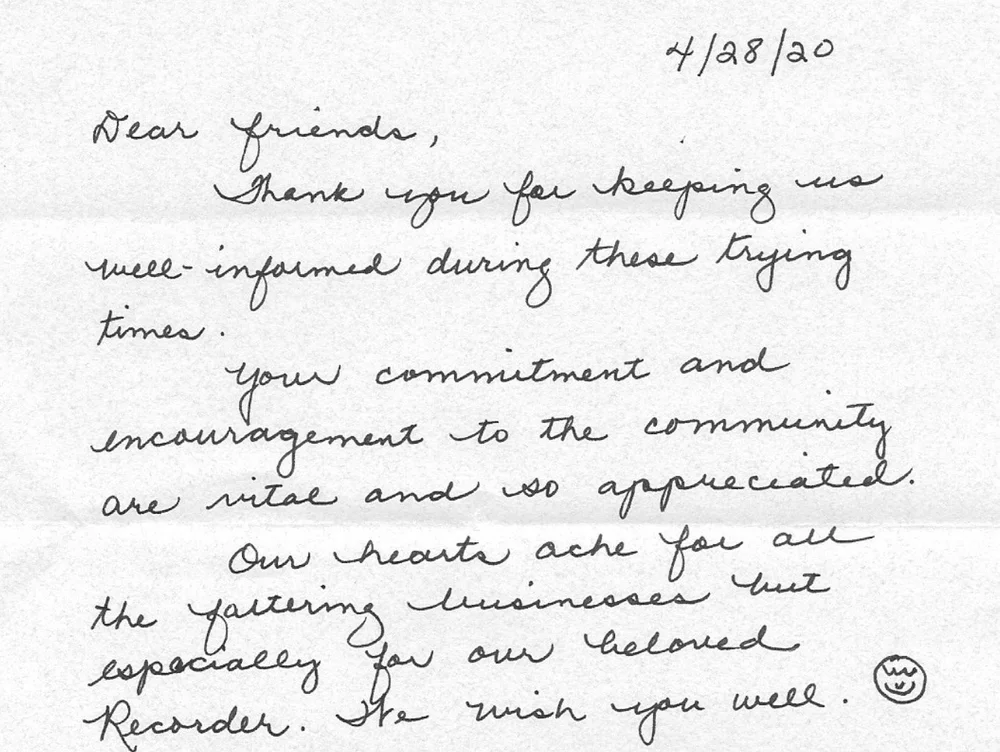 4/28/20
Dear friends,
Thank you for keeping us
well-informed during these trying
times.
Your commitment and
encouragement to the community
are vital and so appreciated.
Our hearts ache for all
the faltering businesses but
especially for our beloved
Recorder. We wish you well.